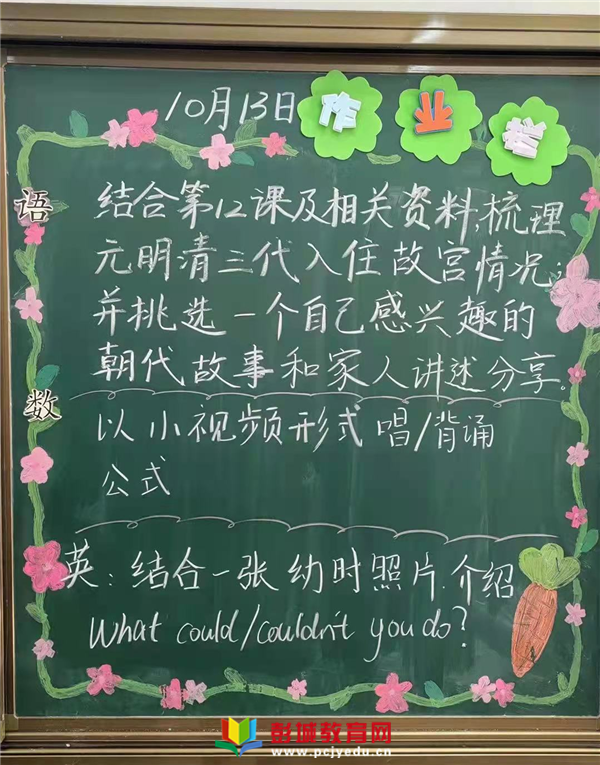 10月13日 作业栏
语 结合第12课及相关资料,梳理
元明清三代入住故宫情况;
并挑选一个自己感兴趣的
朝代故事和家人讲述分享。
数 以小视频形式唱/背诵
公式
英:结合一张幼时照片.介绍
What could/couldn't you do?
彭城教育网
www.pcjyedu.cn